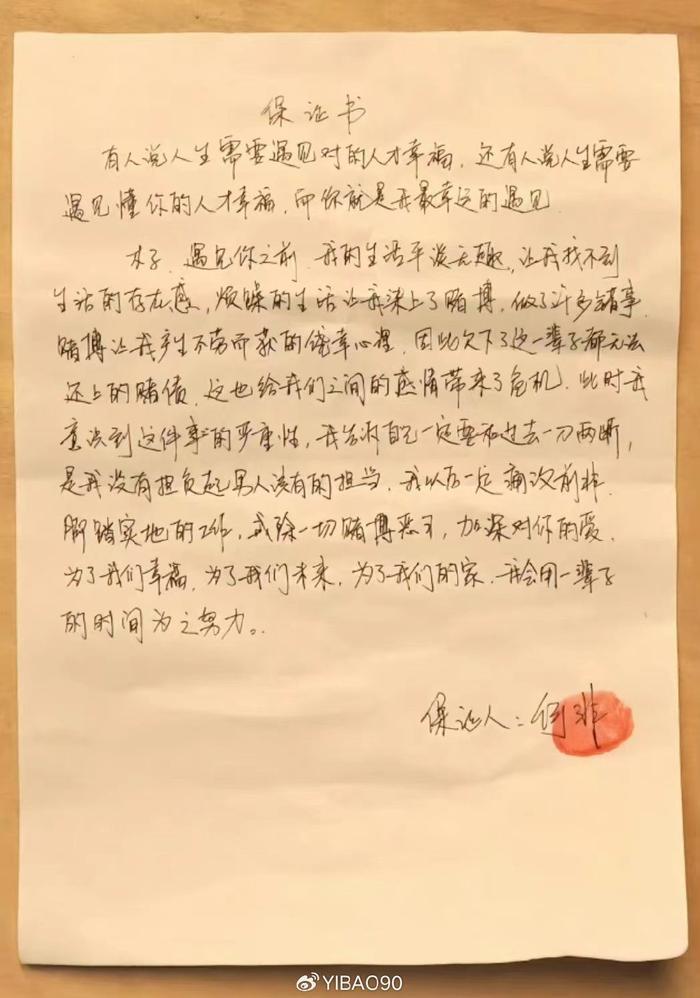 保证书
有人说人生需要遇见对的人才幸福，还有人说人生需要
遇见懂你的人才幸福，而你就是我最幸运的遇见
遇见你之前，我的生活平淡无趣，让我找不到
生活的存在感，烦躁的生活让我染上了赌博，做了许多错事，
赌博让我产生不劳而获的侥幸心理，因此欠下了这一辈子都无法
还上的赌债，这也给我们之间的感情带来了危机，此时我
意识到这件事的严重性，我告诉自己一定要和过去一刀两断，
是我没有担负起男人该有的担当，我以后一定痛改前非，
脚踏实地的工作，戒除一切赌博恶习，加深对你的爱，
为了我们幸福，为了我们未来，为了我们的家，我会用一辈子
的时间为之努力。
保证人：何非
YIBAO90